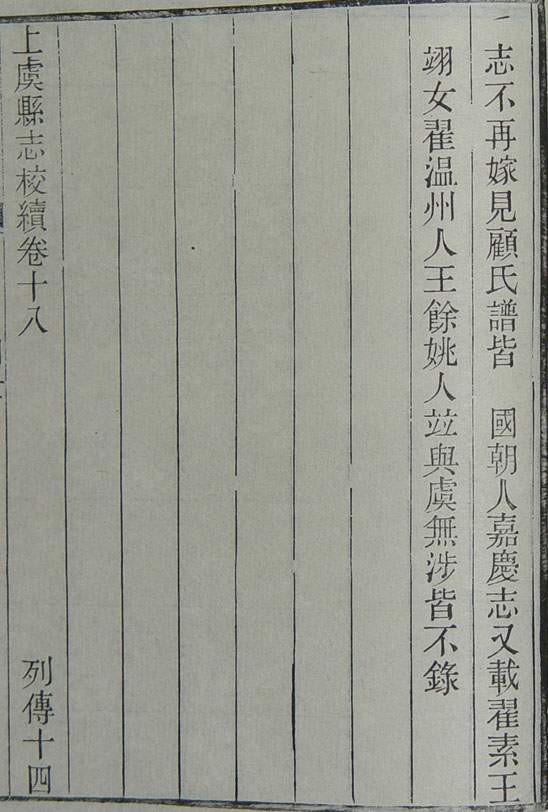 志不再嫁見顧氏譜皆　國朝人嘉慶志又載翟素王
翊女翟温州人王餘姚人竝與虞無涉皆不錄
上虞縣志校續卷十八　列傳十四